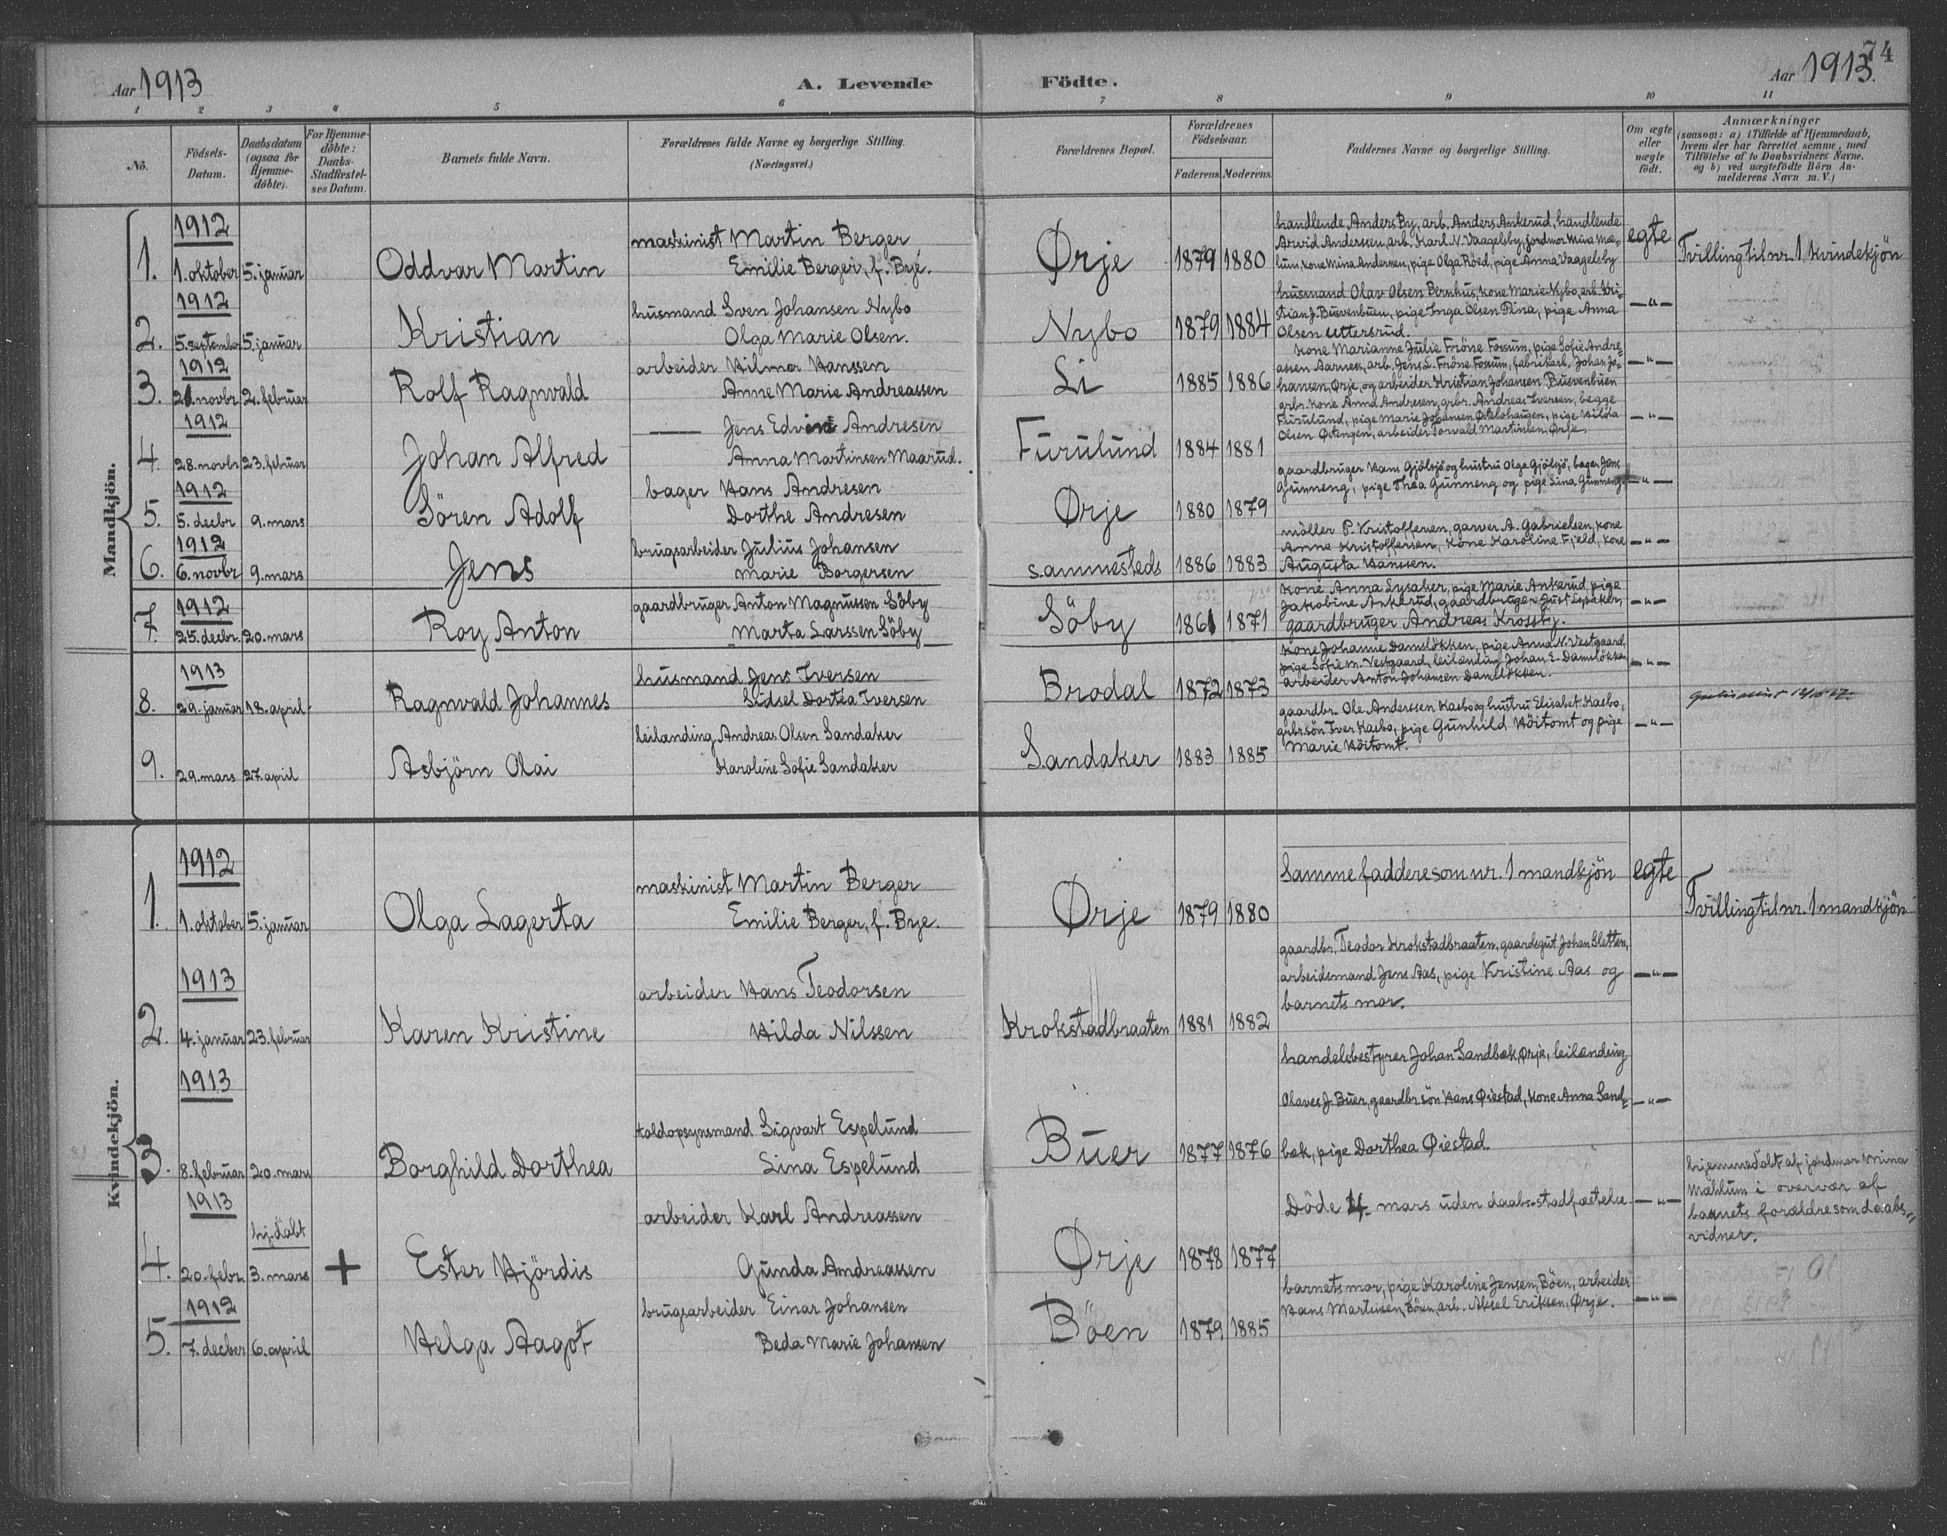 Aar 1913
A. Levende
Födte.
Aar 1913.
74
1 2 3 4 5 6 7 8 9 10 11
No.
Födsels-Datum.
Daabsdatum (ogsaa for Hjemme-döbte).
For Hjemme-döbte: Daabs-Stadfæstel-ses Datum.
Barnets fulde Navn.
Forældrenes fulde Navne og borgerlige Stilling.
(Næringsvei.)
Forældrenes Bopæl.
Forældrenes Födselsaar.
Faderens. Moderens.
Faddernes Navne og borgerlige Stilling.
Om ægte eller uægte födt.
Anmærkninger
(saasom: a) i Tilfælde af Hjemmedaab,
hvem der har forrettet samme, med
Tilföielse af to Daabsvidners Navne.
og b) ved uægtefödte Börn An-
melderens Navn m. V.)
Mandkjön.
1912
1. 1. oktober 5. januar Oddvar Martin
maskinist Martin Berger
Emilie Berger, f. Bye.
Ørje 1879 1880
handlende Anders By, arb. Anders Ankerud, handlende
Arvid Anderssen, arb. Karl N. Vaagelsby, jordmor Mina Mæ-
lum, kone Mina Andersen, pige Olga Röed, pige Anna Vaagelsby
egte
Tvilling til nr. 1 kvindekjön
1912
2. 5. september 5. januar Kristian
husmand Sven Johansen Nybo
Olga Marie Olsen.
Nybo 1879 1884
husmand Olav Olsen Bernhus, kone Marie Nybo, arb. Kri-
stian J. Busvenbuen, pige Inga Olsen Pina, pige Anna
Olsen
— " —
1912
3. 21 novbr 2. februar Rolf Ragnvald
arbeider Hilmar Hanssen
Anne Marie Andreassen
Li 1885 1886
kone Marianne Julie Fröne Fossum, pige Sofie Andre-
assen Aarnes, arb. Jens L. Fröne Fossum, fabrikarb. Johan Jo-
hansen, Ørje, og arbeider Kristian Johansen Busvenbuen
— " —
1912
4. 28. novbr 23. februar Johan Alfred
— Jens Edvin Andresen
Anna Martinsen Maarud.
Furulund 1884 1881
arbr. kone Anna Andresen, arbr. Andreas Iversen, begge
Furulund, pige Marie Johansen Østebohaugen, pige Hilda
Olsen Østengen, arbeider Torvald Martinsen Ørje.
— " —
1912
5. 5. decbr 9. mars Sören Adolf
bager Hans Andresen
Dorthe Andresen
Ørje 1880 1879
gaardbruger Hans Gjölsjö og hustru Olga Gjölsjö, bager Jens
Gunneng, pige Thea Gunneng og pige Lina Gunneng
— " —
1912
6. 6. novbr 9. mars Jens
brugsarbeider Julius Johansen
Marie Borgersen
sammesteds 1886 1883
möller P. Kristoffersen, garver A. Gabrielsen, kone
Anna Kristoffersen, kone Karoline Fjeld, kone
Augusta Hanssen.
— " —
1912
7. 25. decbr. 20. mars Roy Anton
gaardbruger Anton Magnussen Söby
Marta Larssen Söby
Söby 1861 1871
kone Anna Lysaker, pige Marie Ankerud, pige
Jakobine Ankerud, gaardbruger Just Lysaker,
gaardbruger Andreas Krossby.
— " —
1913
8. 29. januar 18. april Ragnvald Johannes
husmand Jens Iversen
Sidsel Dortea Iversen
Brodal 1872 1873
kone Johanne Damslökken, pige Anna N. Vestgaard
pige Sofie M. Vestgaard, leilænding Johan E. Damslökken
arbeider Anton Johansen Damslökken.
— " —
9. 29. mars 27. april Asbjörn Olai
leilænding Andreas Olsen Sandaker
Karoline Sofie Sandaker
Sandaker 1883 1885
gaardbr. Ole Anderssen Kasbo og hustru Elisabet Kasbo,
grbr.sön Iver Kasbo, pige Gunhild Höitomt og pige
Marie Höitomt.
— " —
Kvindekjön.
1912
1. 1. oktober 5. januar Olga Lagerta
maskinist Martin Berger
Emilie Berger, f. Bye.
Ørje 1879 1880
Samme faddere som nr. 1 mandkjön
egte
Tvilling til nr. 1 mandkjön
1913
2. 4. januar 23. februar Karen Kristine
arbeider Hans Teodorsen
Hilda Nilssen
Krokstadbraaten 1881 1882
gaardbr. Teodor Krokstadbraaten, gaardsgut Johan Sletten,
arbeidsmand Jens Aas, pige Kristine Aas og
barnets mor.
— " —
1913
3. 8. februar 20. mars Borghild Dorthea
toldopsynsmand Sigvart Espelund
Lina Espelund
Buer 1877 1876
handelsbestyrer Johan Sandbæk, Ørje, leilænding
Olaves J. Buer, gaardbr.sön Hans Øiestad, kone Anna Sand-
bæk, pige Dorthea Øiestad.
— " —
1913
4. 20. febr. hj. döbt 3. mars + Ester Hjördis
arbeider Karl Andreassen
Gunda Andreassen
Ørje 1878 1877
Döde 4. mars uden daabs-stadfæstelse
— " —
hjemmedöbt af jordmor Mina
Mæhlum i overvær af
barnets forældre som daabs-
vidner.
1912
5. 7. decber 6. april Helga Aagot
brugsarbeider Einar Johansen
Beda Marie Johansen
Böen 1879 1885
barnets mor, pige Karoline Jensen, Böen, arbeider
Hans Martinsen, Böen, arb. Aksel Eriksen, Ørje.
— " —